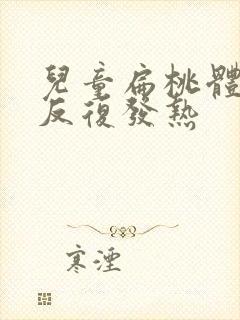 兒童扁桃體
反復發熱
寒湮